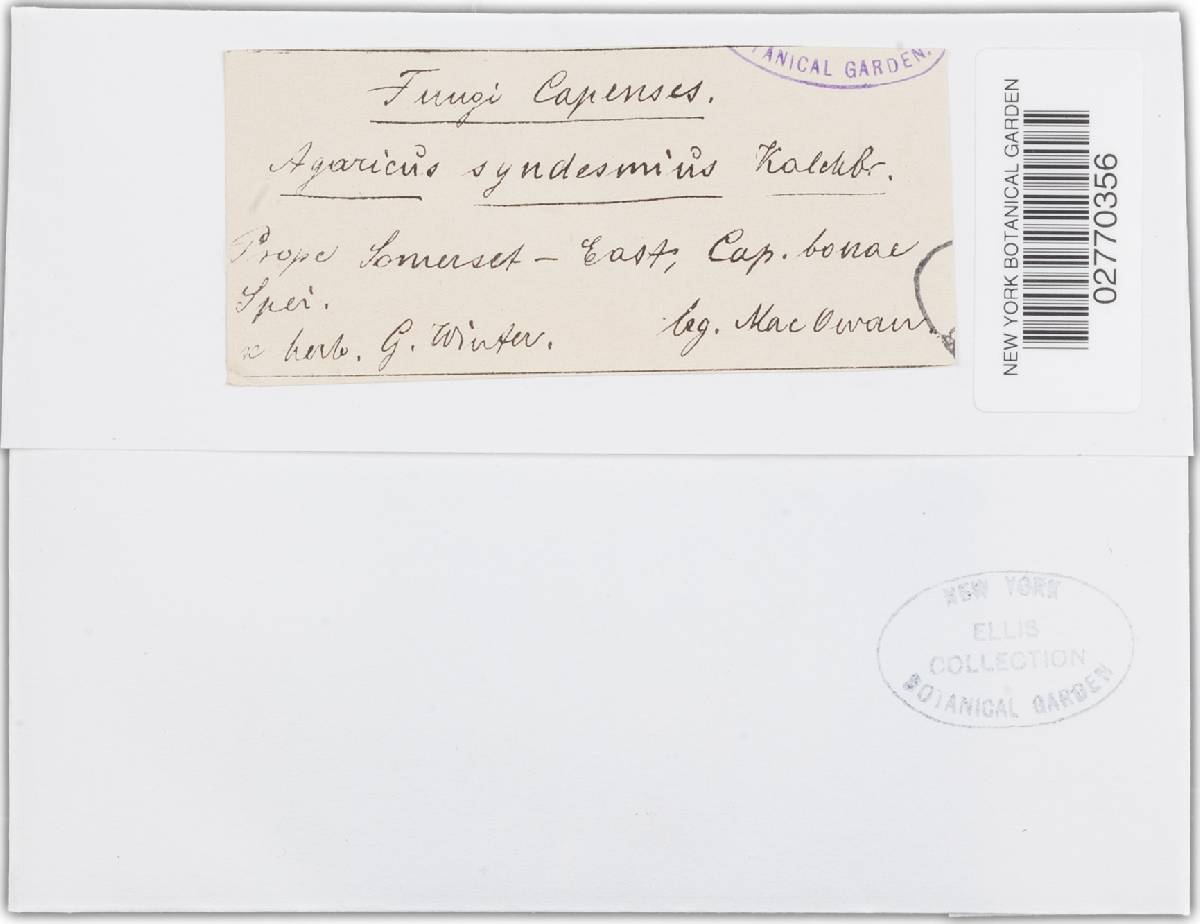 TANICAL GARDEN.
Fungi Capenses.
Agaricus syndesmius Kalchbr.
Prope Somerset - East, Cap. bonae
Spei.
x herb. G. Winter. leg. Mac Owan.
NEW YORK BOTANICAL GARDEN
02770356
NEW YORK
ELLIS
COLLECTION
BOTANICAL GARDEN